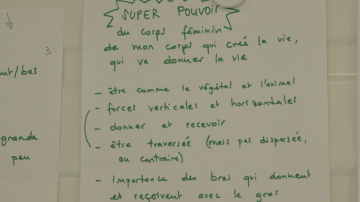 3
nt/bas
grande
peu
SUPER POUVOIR
du corps féminin
de mon corps qui crée la vie,
qui va donner la vie
- être comme le végétal et l'animal
- forces verticales et horizontales
- donner et recevoir
- être traversée (mais pas dispersée,
au contraire)
- Importance des bras qui donnent
et reçoivent avec le gros